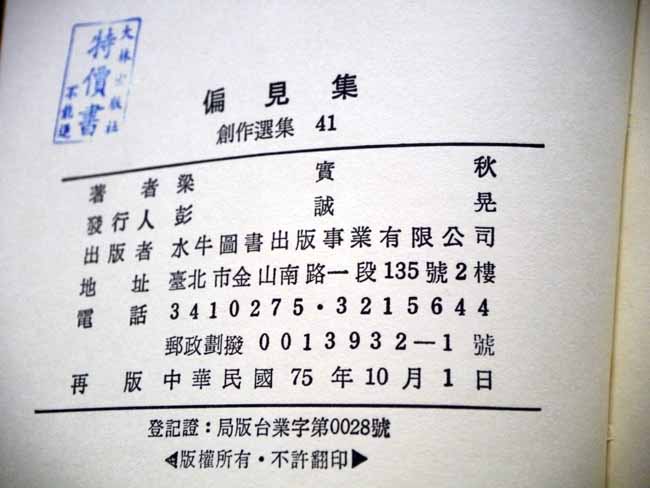 大林出版社
特價書
不能退
偏見集
創作選集 41
著者 梁實秋
發行人 彭誠晃
出版者 水牛圖書出版事業有限公司
地址 臺北市金山南路一段135號2樓
電話 3410275·3215644
郵政劃撥 0013932—1號
再版 中華民國 75年10月1日
登記證：局版台業字第0028號
◀版權所有·不許翻印▶